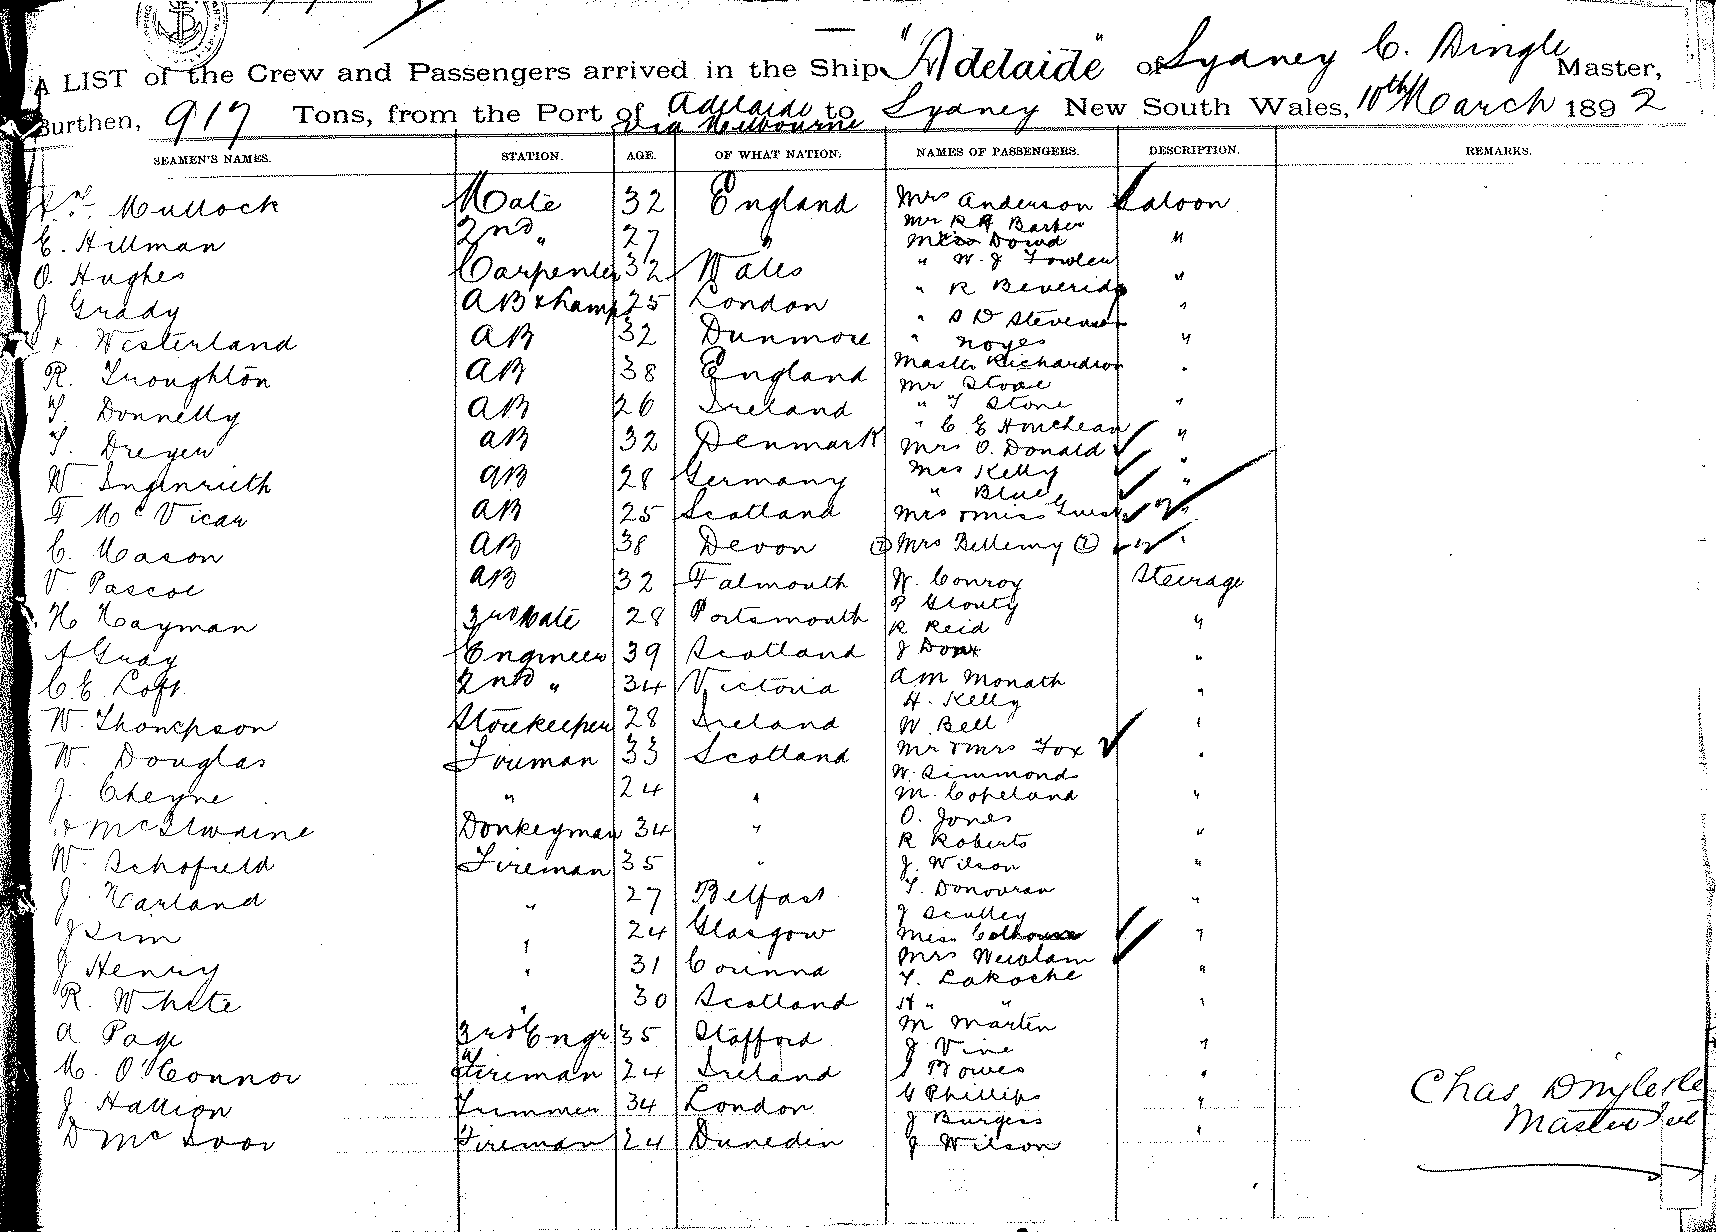 A LIST of the Crew and Passengers arrived in the Ship "Adelaide" of Sydney C. Dingle Master,
Burthen, 917 Tons, from the Port of Adelaide via Melbourne to Sydney New South Wales, 10th March 1892
SEAMEN'S NAMES. STATION. AGE. OF WHAT NATION. NAMES OF PASSENGERS. DESCRIPTION. REMARKS.
Mullock Mate 32 England Mrs Anderson Saloon
Mr R H Barber
E. Hillman 2nd " 27 " Miss Dowd "
O. Hughes Carpenter 32 Wales " W. J Fowler
J Grady AB & Lamps 25 London " R Beveridge "
" S D Stevenson "
Westerland AB 32 Dunmore " Noyes "
R. Troughton AB 38 England Master Richardson "
Mr Stone
T. Donnelly AB 26 Ireland " T Stone "
" C E
T. Dreyer AB 32 Denmark Mrs O. Donald "
W. Ingenrieth AB 28 Germany Mrs Kelly "
" Blue "
F McVicar AB 25 Scotland Mrs & Miss Guest "
C. Mason AB 38 Devon Mrs Bellemy (2) "
V Pascoe AB 32 Falmouth W. Conroy Steerage
H Hayman 3rd Mate 28 Portsmouth P Grouty
R Reid "
A Gray Engineer 39 Scotland J "
C. E. Loft 2nd " 34 Victoria AM Monath
H. Kelly "
W. Thompson Storekeeper 28 Ireland W. Bell "
W. Douglas Fireman 33 Scotland Mr & Mrs Fox "
W. Simmonds
J. Cheyne " 24 " M. Copeland "
McIlwaine Donkeyman 34 " O. Jones
R Roberts "
W. Schofield Fireman 35 " J. Wilson "
J. Harland " 27 Belfast T. Donovan "
J Sculley
J Sim " 24 Glasgow Miss Calhoun "
J Henry " 31 Corinna Mrs Newlam
T. Lakoche "
R. White " 30 Scotland H " " "
A Page 3rd Engr 35 Stafford M Marten
J Vine "
M. O'Connor Fireman 24 Ireland J Bowes "
J. Hallion Trimmer 34 London C Phillips "
J Burgess
D McIvor Fireman 24 Dunedin J Wilson "
Chas Dingle
Master